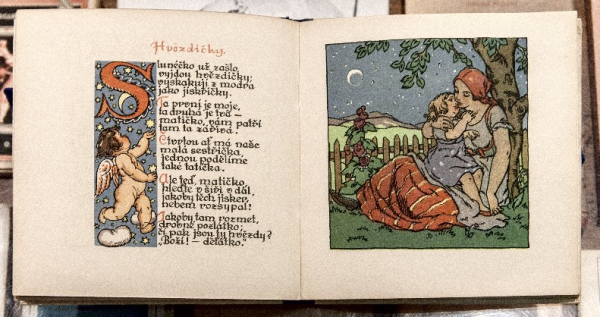 Hvězdičky.
Slunéčko už zašlo,
vyjdou hvězdičky;
vyskakují z modra
jako jiskřičky.
Ta první je moje,
ta druhá je tvá –
matičko, vám patří
tam ta zářivá.
Čtvrtou ať má naše
malá sestřička,
jednou podělíme
také tatíčka.
Ale teď, matičko,
hleďte v šíř i v dál,
jakoby těch jisker
nebem rozsypal!
Jakoby tam rozmet,
drobné pozlátko;
či pak jsou ty hvězdy?
"Boží! – děťátko."